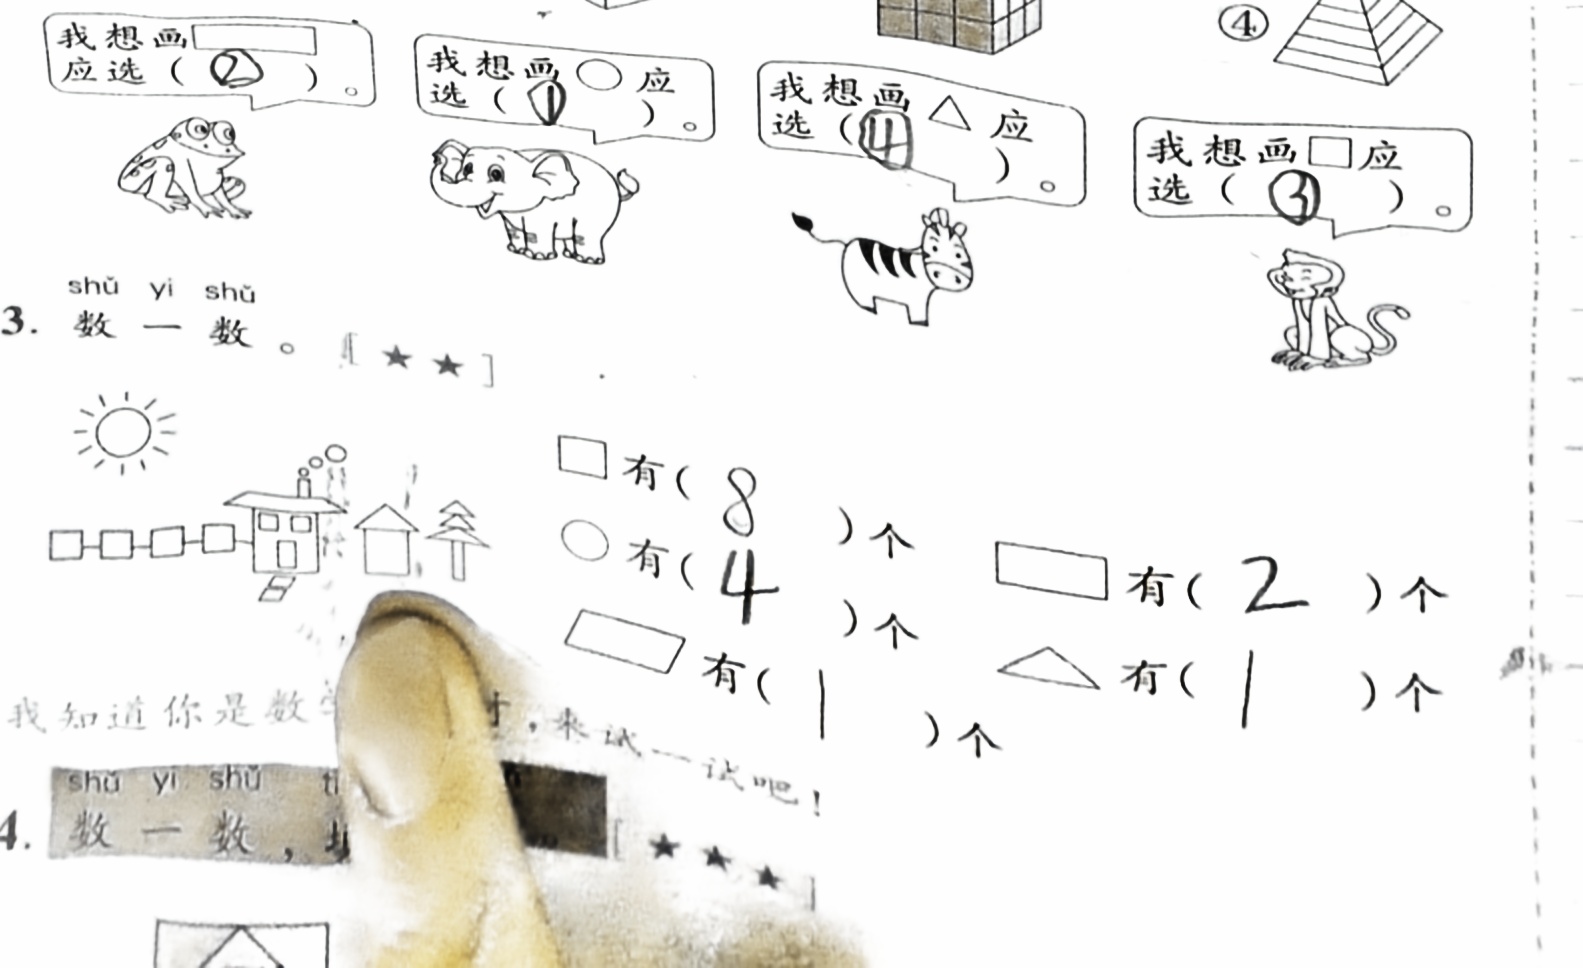 ④
我想画
应选（②）。
我想画 应
选（①）。
我想画 应
选（④）。
我想画 应
选（③）。
shǔ yi shǔ
3. 数一数。[★★]
有（8）个
有（4）个
有（2）个
有（1）个
有（1）个
我知道你是数 ，来试一试吧！
shǔ yi shǔ
4. 数一数， [★★★]